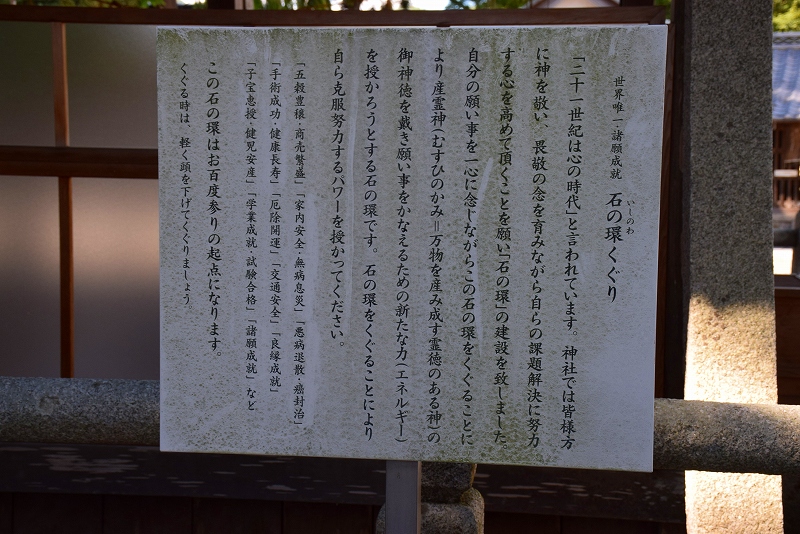 世界唯一 諸願成就 石の環くぐり
いしのわ
「二十一世紀は心の時代」と言われています。神社では皆様方
に神を敬い、畏敬の念を育みながら自らの課題解決に努力
する心を高めて頂くことを願い「石の環」の建設を致しました。
自分の願い事を一心に念じながらこの石の環をくぐることに
より産霊神(むすひのかみ=万物を産み成す霊徳のある神)の
御神徳を戴き願い事をかなえるための新たな力(エネルギー)
を授かろうとする石の環です。石の環をくぐることにより
自ら克服努力するパワーを授かってください。
「五穀豊穣・商売繁盛」「家内安全・無病息災」「悪病退散・癌封治」
「手術成功・健康長寿」「厄除開運」「交通安全」「良縁成就」
「子宝恵授・健児安産」「学業成就・試験合格」「諸願成就」など
この石の環はお百度参りの起点になります。
くぐる時は、軽く頭を下げてくぐりましょう。